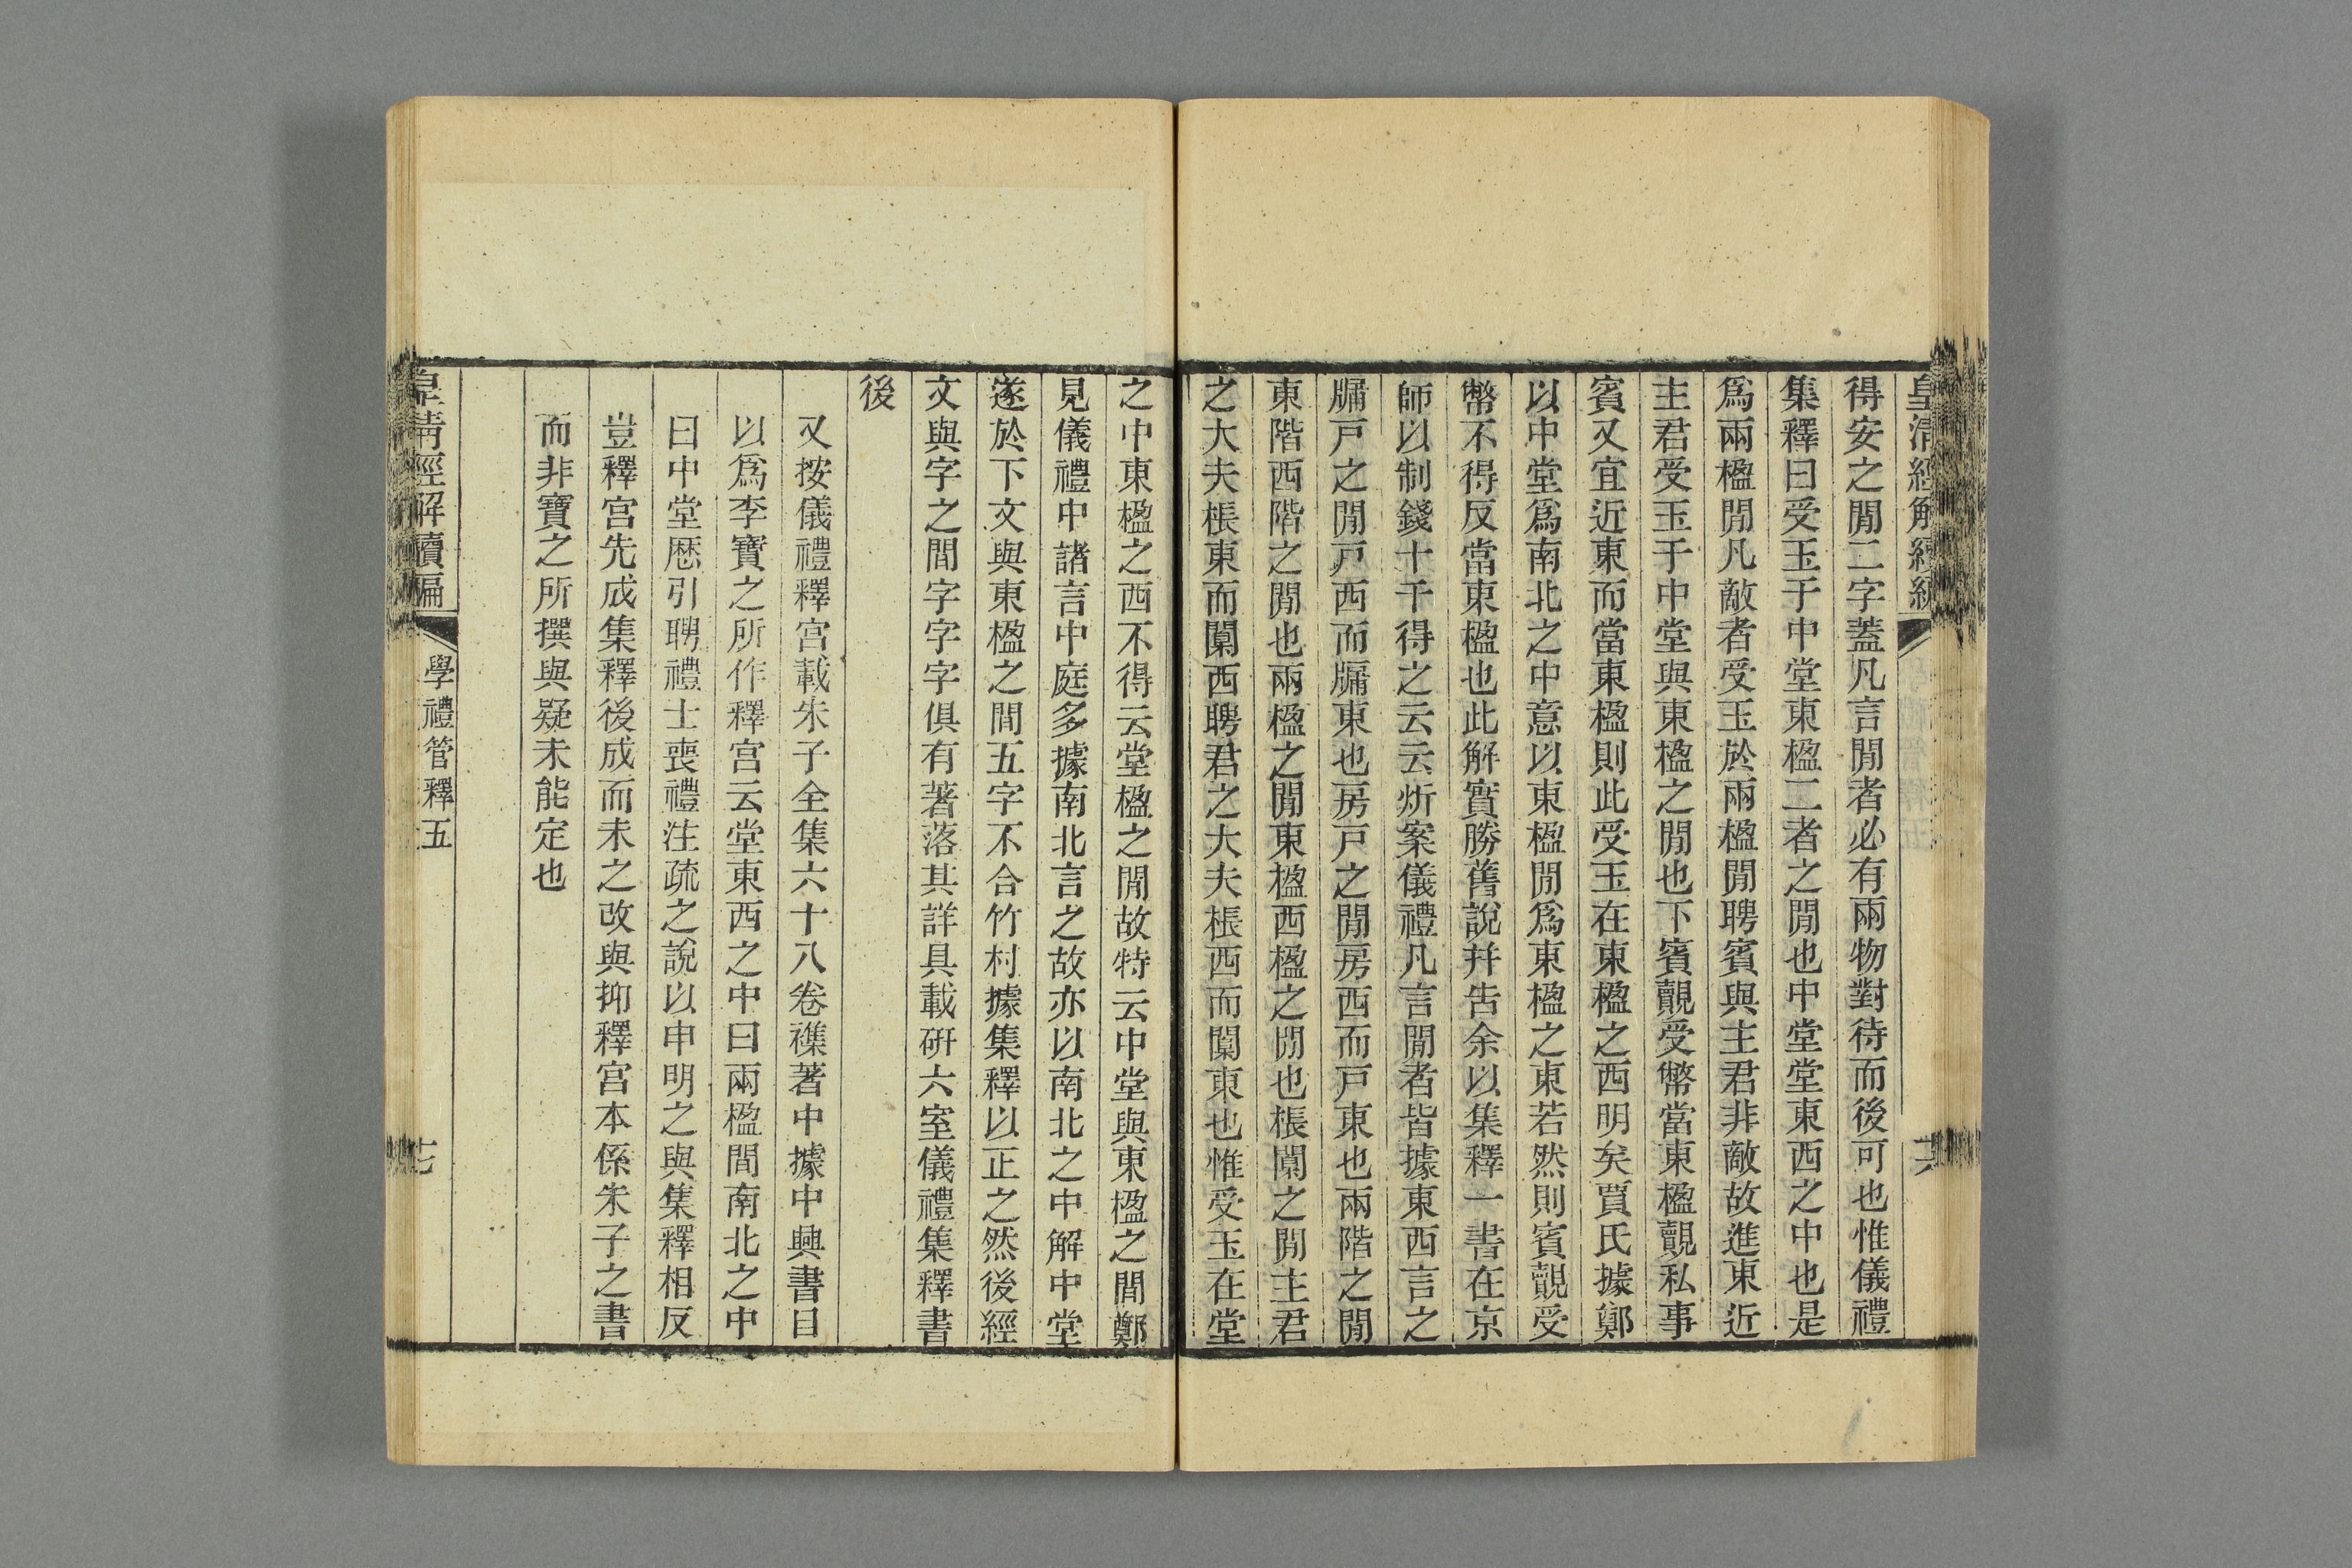 皇清經解續編
十六
得安之閒二字蓋凡言閒者必有兩物對待而後可也惟儀禮
集釋曰受玉于中堂東楹二者之閒也中堂堂東西之中也是
爲兩楹閒凡敵者受玉於兩楹閒聘賓與主君非敵故進東近
主君受玉于中堂與東楹之閒也下賓覿受幣當東楹覿私事
賓又宜近東而當東楹則此受玉在東楹之西明矣賈氏據鄭
以中堂爲南北之中意以東楹閒爲東楹之東若然則賓覿受
幣不得反當東楹也此解實勝舊說幷告余以集釋一書在京
師以制錢十千得之云云炘案儀禮凡言閒者皆據東西言之
牖戸之閒戸西而牖東也房戸之閒房西而戸東也兩階之閒
東階西階之閒也兩楹之閒東楹西楹之閒也棖闑之閒主君
之大夫棖東而闑西聘君之大夫棖西而闑東也惟受玉在堂
之中東楹之西不得云堂楹之閒故特云中堂與東楹之間鄭
見儀禮中諸言中庭多據南北言之故亦以南北之中解中堂
遂於下文與東楹之間五字不合竹村據集釋以正之然後經
文與字之間字字字俱有著落其詳具載硏六室儀禮集釋書
後
又按儀禮釋宮載朱子全集六十八卷襍著中據中興書目
以爲李寶之所作釋宮云堂東西之中曰兩楹間南北之中
曰中堂厯引聘禮士喪禮注疏之說以申明之與集釋相反
豈釋宮先成集釋後成而未之改與抑釋宮本係朱子之書
而非寶之所撰與疑未能定也
皇清經解續編
學禮管釋五
十七